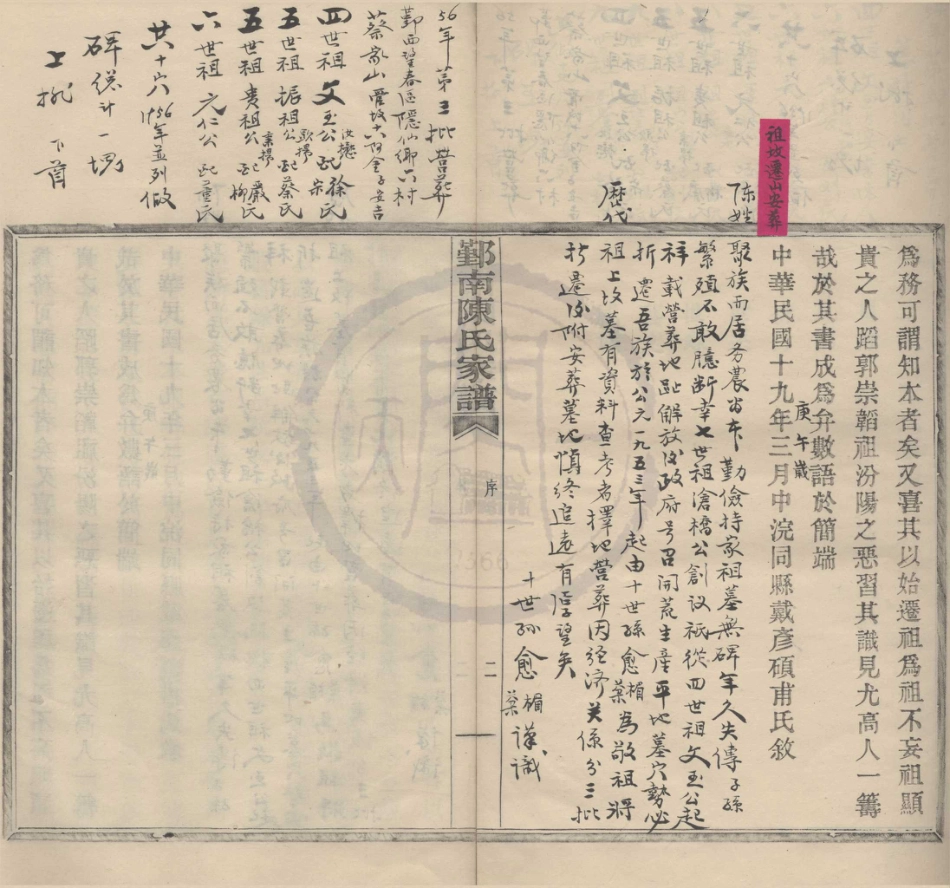 爲務可謂知本者矣又喜其以始遷祖爲祖不妄祖顯
貴之人蹈郭崇韜祖汾陽之惡習其識見尤高人一籌
哉於其書成爲弁數語於簡端
庚午歲
中華民國十九年三月中浣同縣戴彥碩甫氏敘
祖坟遷山安葬
陈姓聚族而居务農为本勤儉持家祖墓無碑年久失傳子孫
繁殖不敢臆断幸七世祖滄橋公創议祇從四世祖文玉公起
祥載营葬地趾解放后政府号召開荒生産平地墓穴勢必
折遷吾族於公元一九五三年起由十世孫愈楣葉為敬祖将
历代祖上坟墓有資料查考者擇地营葬因经济关係分三批
折遷后附安葬墓地慎終追遠有厚望矣
十世孙愈楣葉谨識
鄞南陳氏家譜
序
二
56年第三批营葬
鄞西望春区隱仙鄉六村
蔡家山 安吉
四世祖文玉公 配徐宗氏
五世祖振祖公 配蔡氏
五世祖贵祖公 配嚴柳氏
六世祖元仁公 配董氏
共十六穴1956年並列做
碑総计一塊
上批下首